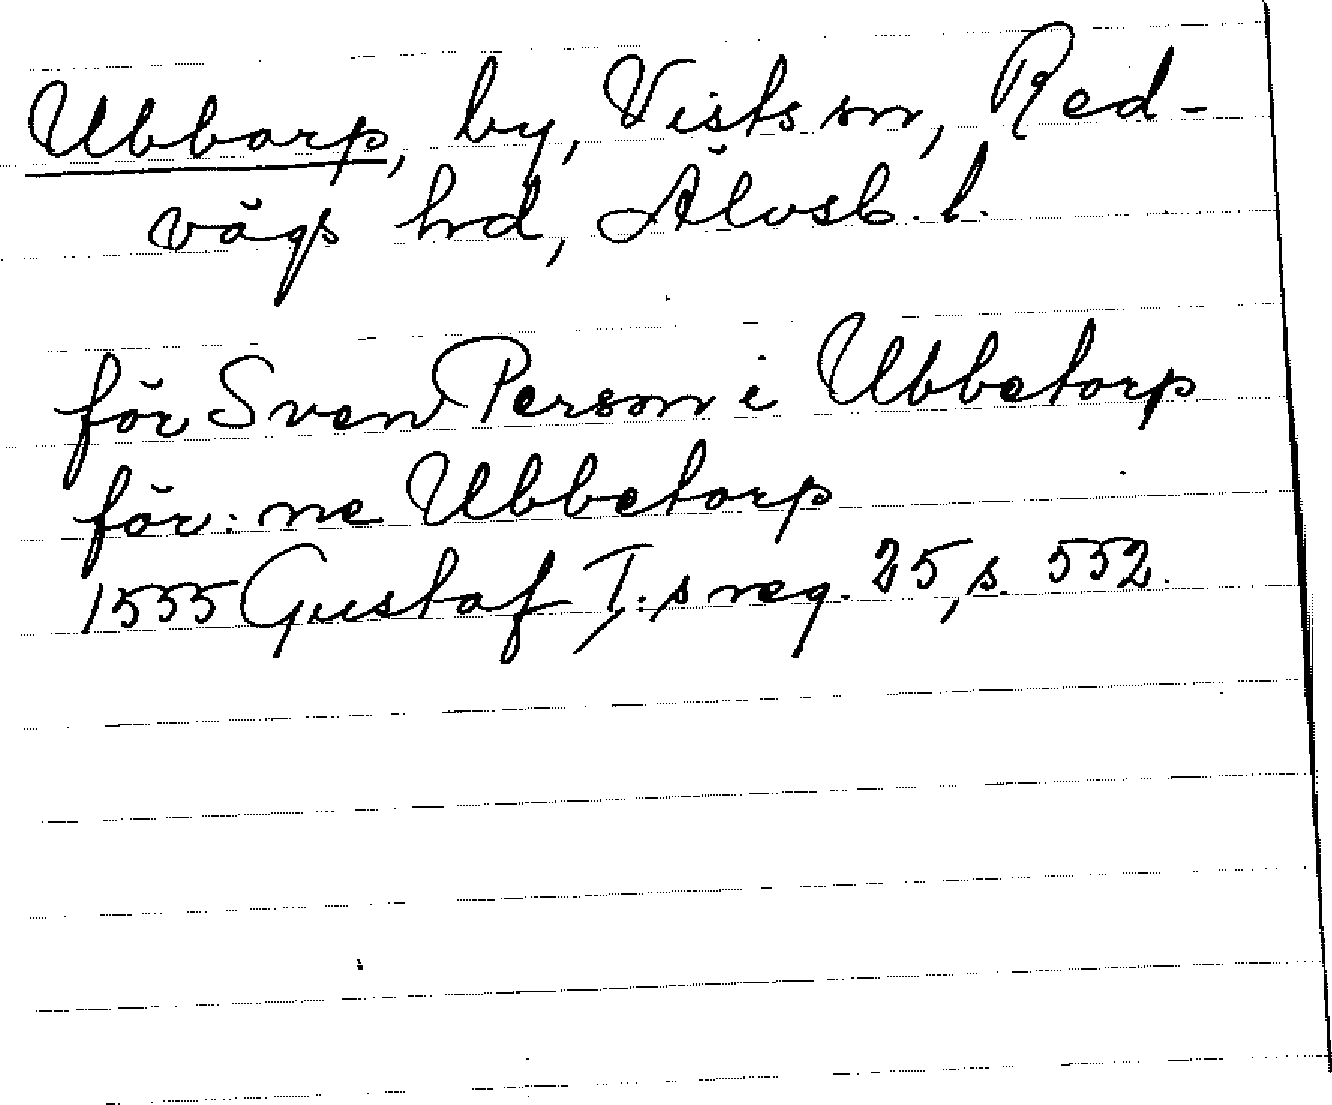 Ubbarp, by, Vists sn, Red-
vägs hd, Älvsb. l.
för Sven Person i Ubbetorp
för: ne Ubbetorp
1555 Gustaf I:s reg. 25, s. 552.